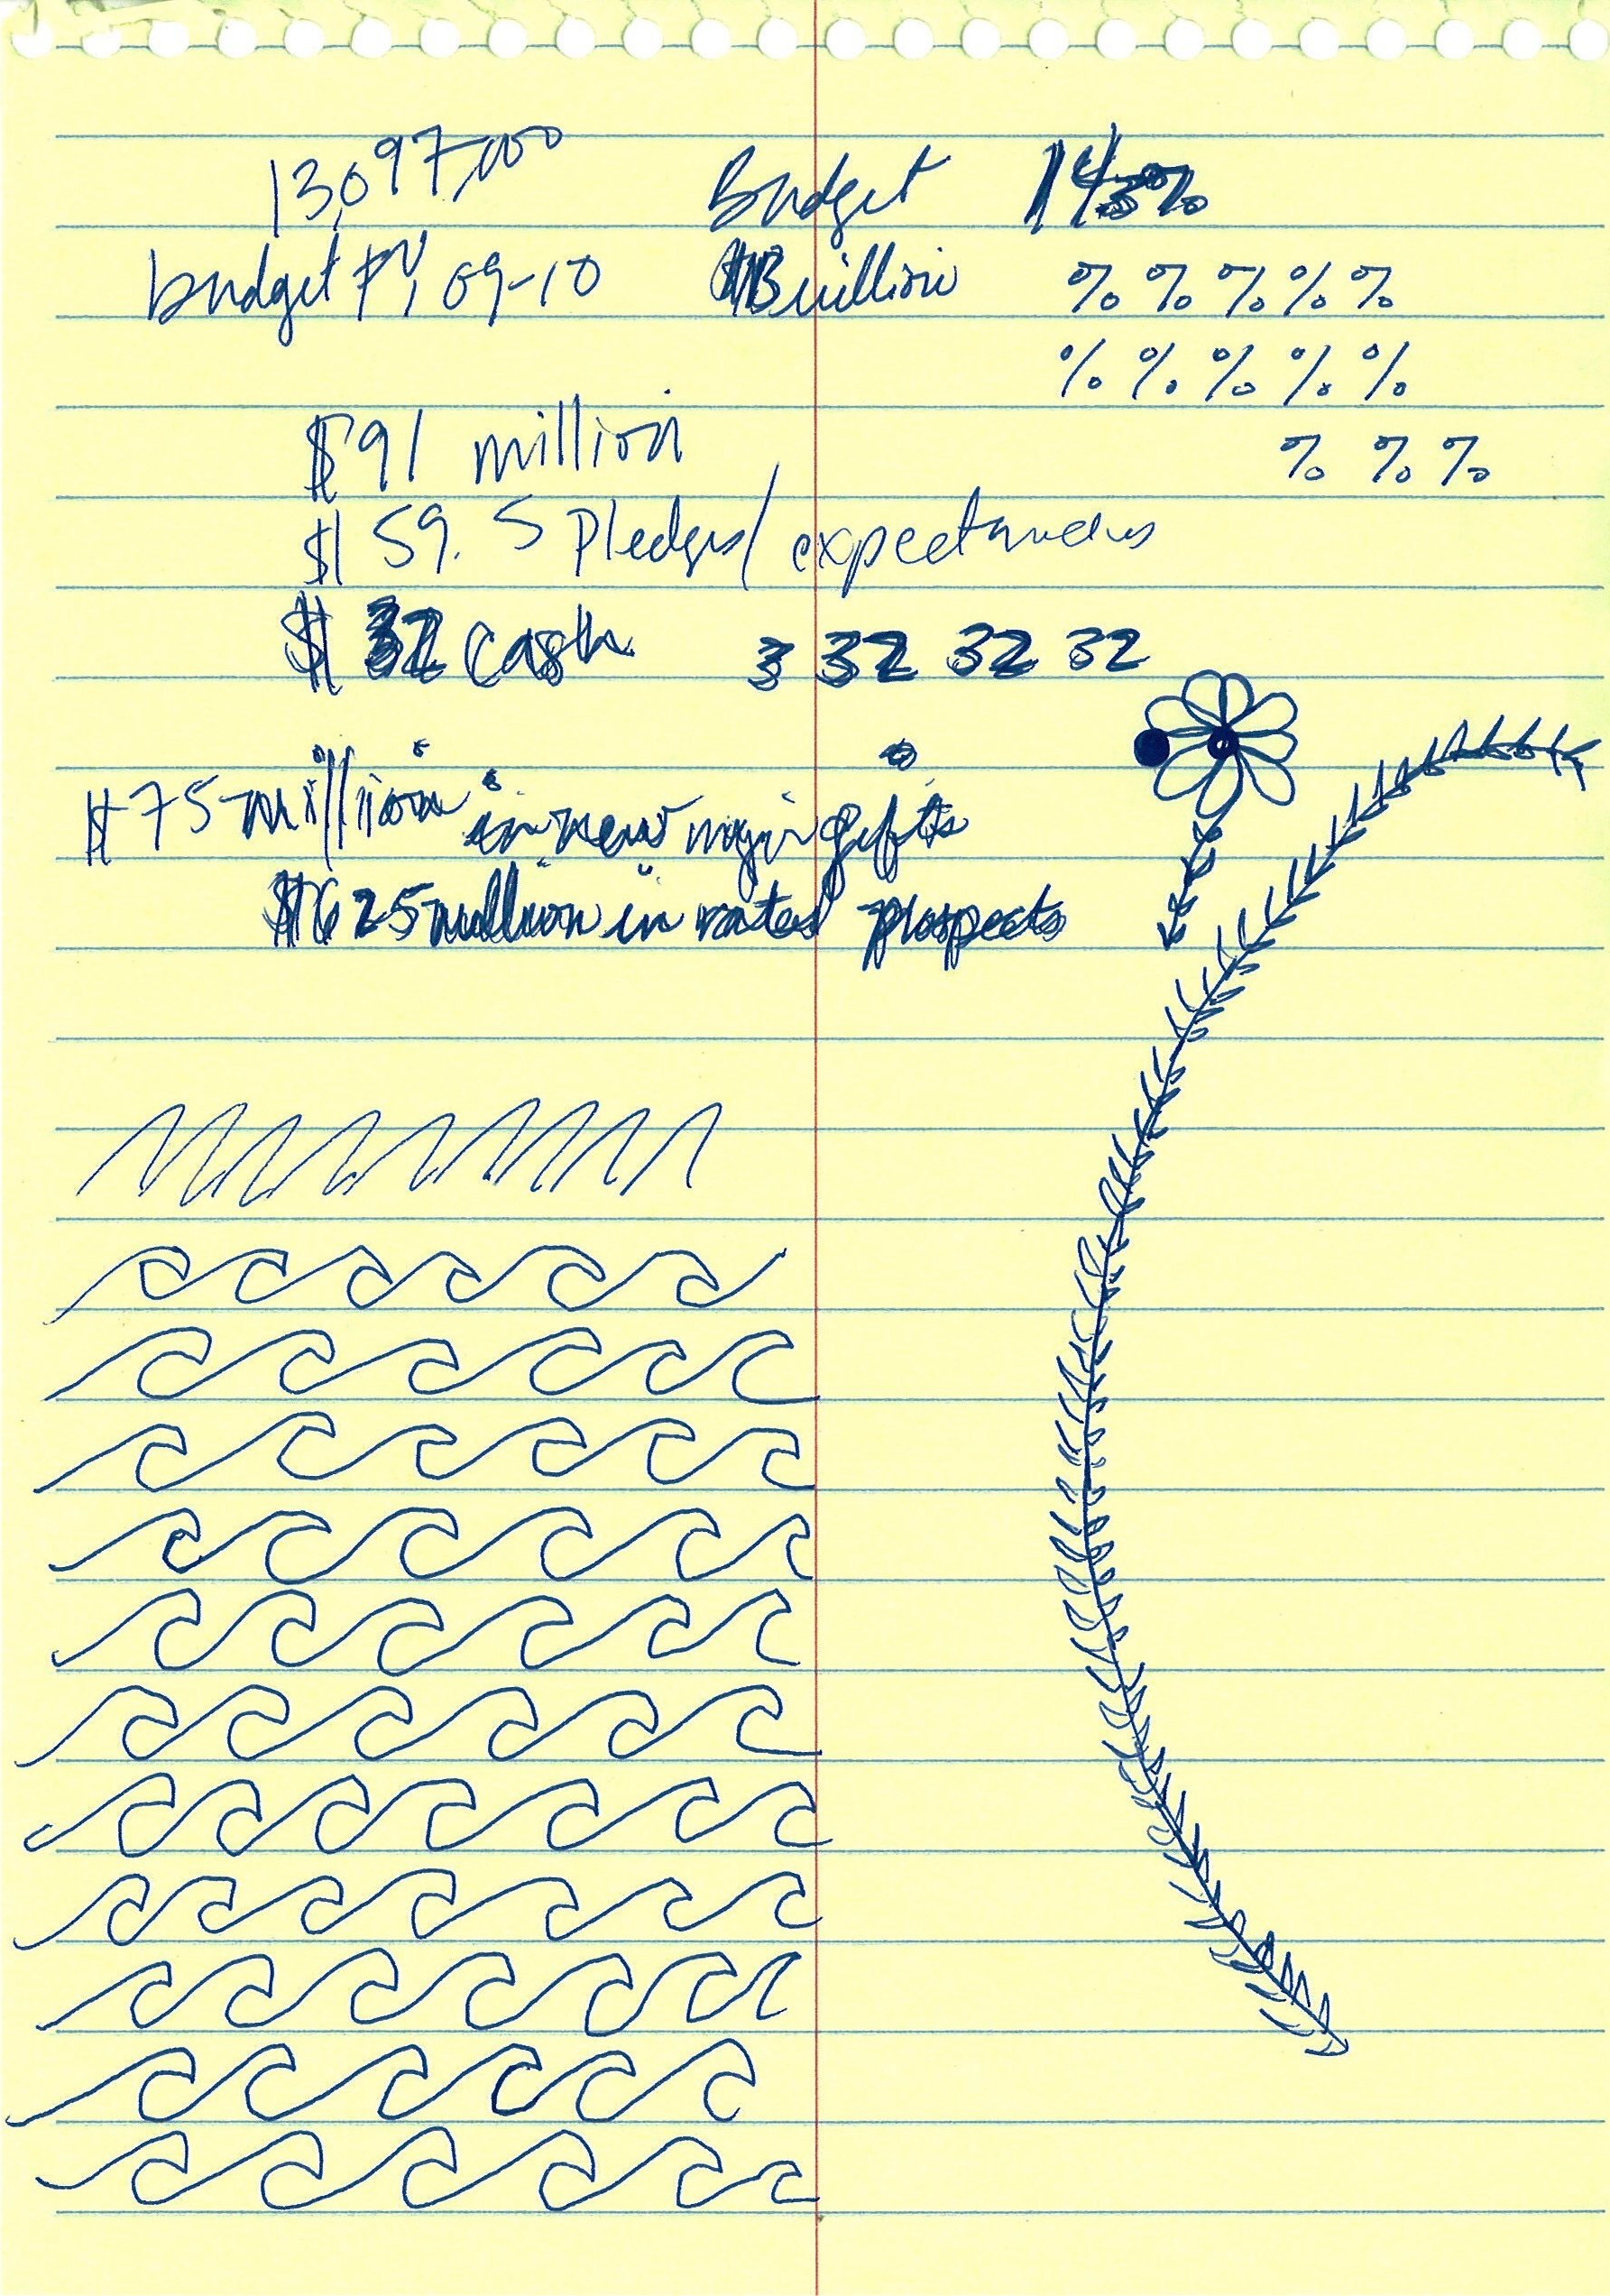 13,097,000 Budget
budget FY, 09-10 $13 million % % % % %
% % % % %
$91 million % % %
$59.5 Pledges/expectancies
$32 cash 3 32 32 32
$75 million in new major gifts
$625 million in rated prospects